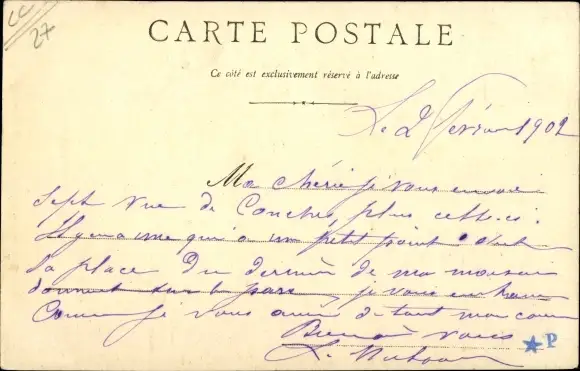 CC
27
CARTE POSTALE
Ce côté est exclusivement réservé à l'adresse
Le 2 Février 1902
Ma chérie je vous envoie
sept vue de Conches, plus celle-ci.
Il y en a une qui a un petit point c'est
la place du dernier de ma maison
donnant sur le parc, je vous embrasse
Comme je vous aime de tout mon cœur
Bien à vous
L.
P